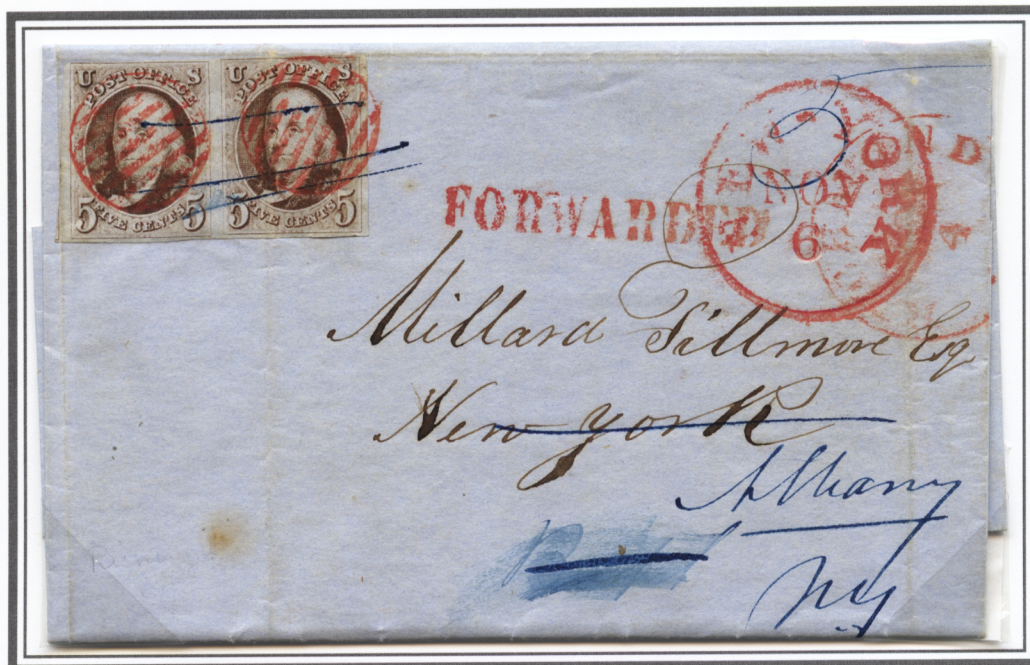 U S
POST OFFICE
5 FIVE CENTS 5
U S
POST OFFICE
5 FIVE CENTS 5
FORWARDED
NEW-YORK
NOV
6
ND
4
Millard Fillmore Esq
New York
Albany
NY